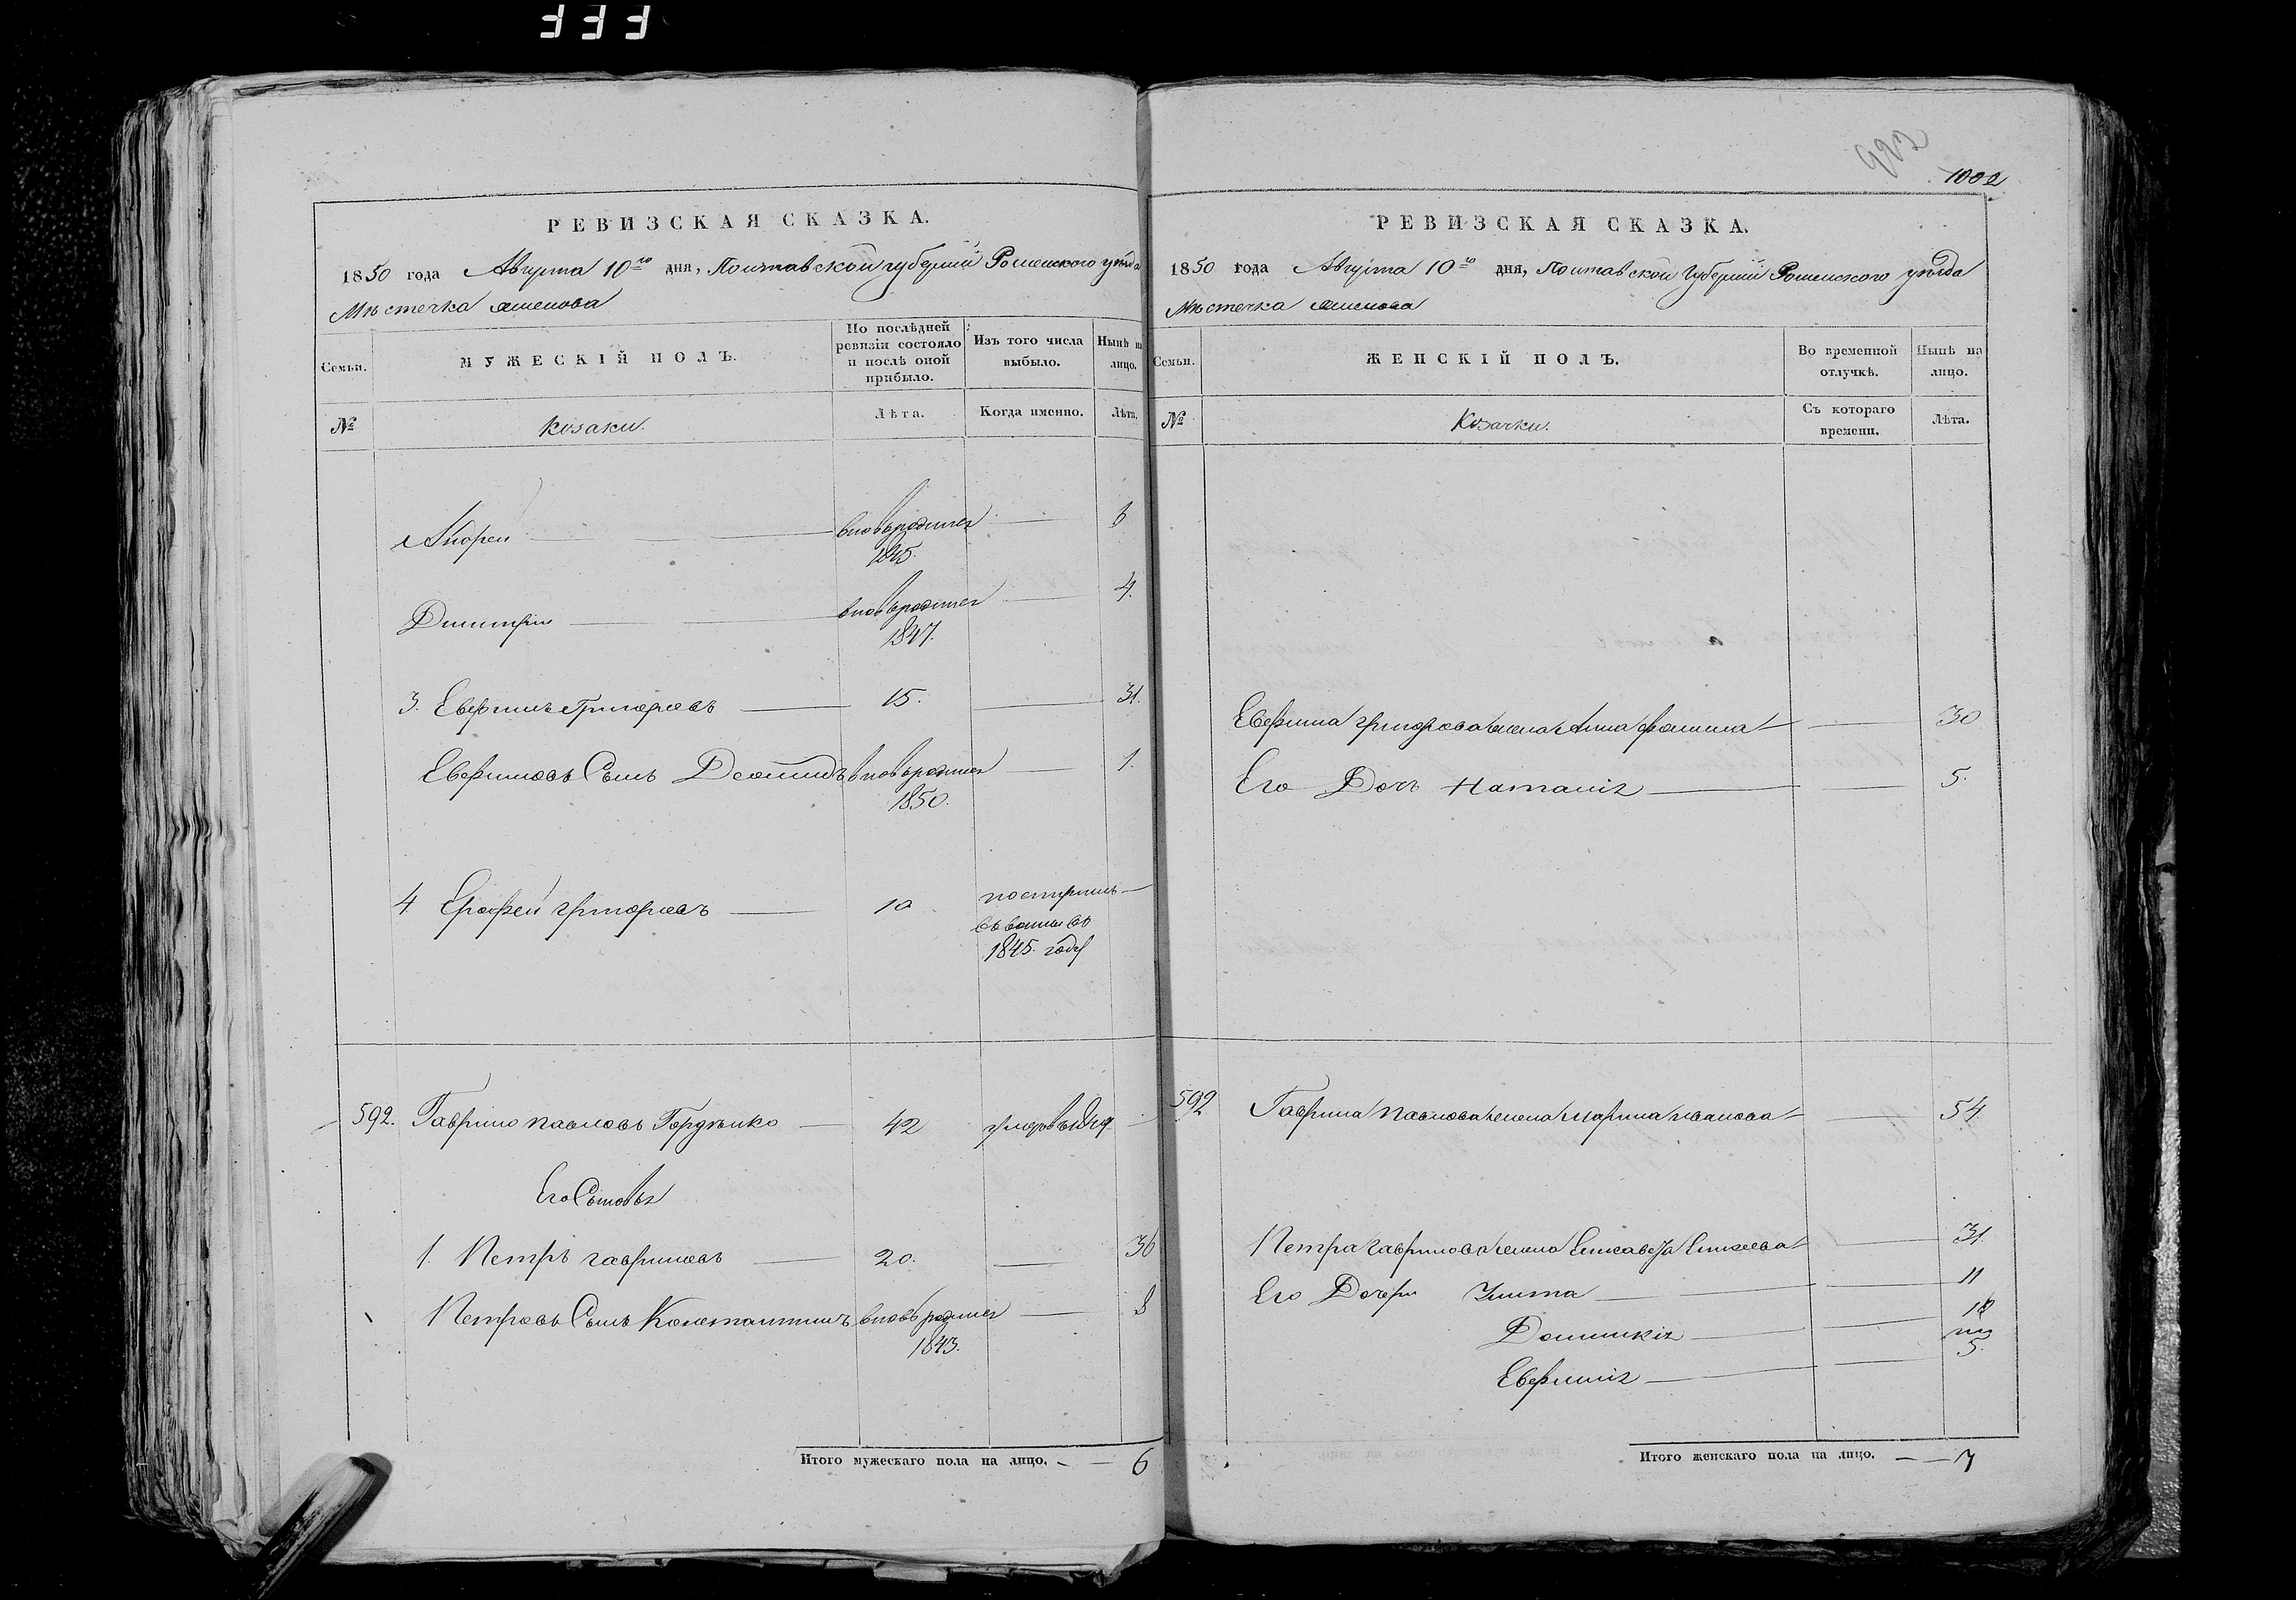 РЕВИЗСКАЯ СКАЗКА.
1850 года Августа 10го дня, Полтавской губернии Роменского уезда
Местечка Смелова
Семьи.
МУЖЕСКІЙ ПОЛЪ.
По послѣдней ревизіи состояло и послѣ оной прибыло.
Изъ того числа выбыло.
Нынѣ на лицо.
№
Козаки.
Лѣта.
Когда именно.
Лѣта.
Андрей вновьродился 1845.
Димитрий вновьродился 4.
1847.
3. Евфимъ Григорьевъ 15. 31.
Евфимовъ Сынъ Леонтий вновьродился 1.
1850.
4. Ерофей Григорьевъ 10
1845. году
592. Гаврило Павловъ Гордѣнко 42
Его Сыновья
1. Петръ Гавриловъ 20. 36
Петровъ Сынъ Константинъ вновьродился 8
1843.
Итого мужескаго пола на лицо. 6
1002
РЕВИЗСКАЯ СКАЗКА.
1850 года Августа 10го дня, Полтавской Губернии Роменского уезда
Местечка Смелова
Семьи.
ЖЕНСКІЙ ПОЛЪ.
Во временной отлучкѣ.
Нынѣ на лицо.
№
Козачки.
Съ котораго времени.
Лѣта.
Евфима Григорьева жена Анна Фомина 30
Его Дочь Наталия 5.
592 Гаврила Павлова жена Марина Иванова 54.
Петра Гаврилова жена Елисавета Елисеева 31.
Его Дочери Улита 11
Домникия
Евфимия 5.
Итого женскаго пола на лицо. 7